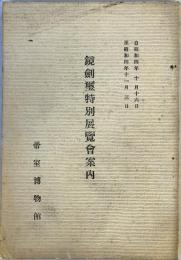 自昭和四年十月十六日
至昭和四年十一月三日
鏡劍璽特別展覽會案内
帝室博物館